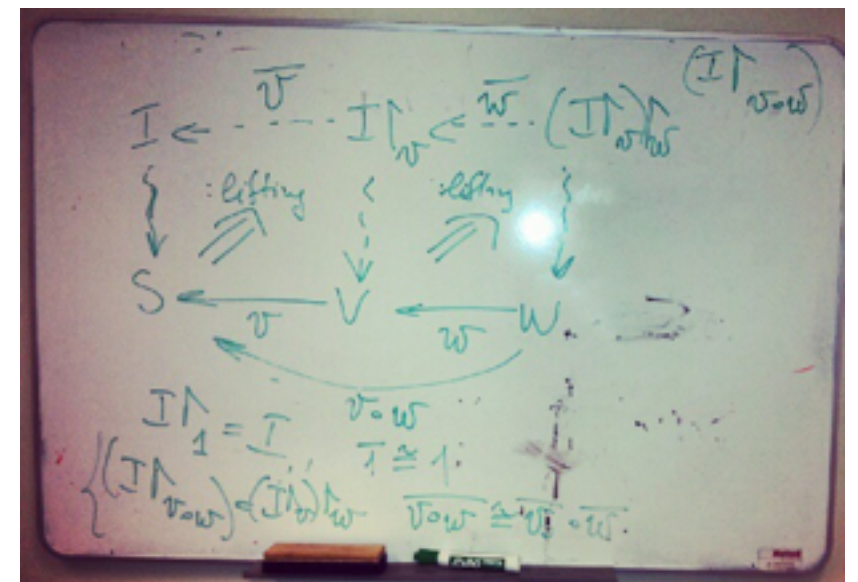 (I↾_{v∘w})
I ⇠ v̄ I↾_v ⇠ w̄ (I↾_v)↾_w
:lifting :lifting
S ← v V ← w W
v∘w
I↾_1 = I 1̄ ≅ 1
{(I↾_{v∘w}) = (I↾_v)↾_w \overline{v∘w} ≅ v̄ ∘ w̄